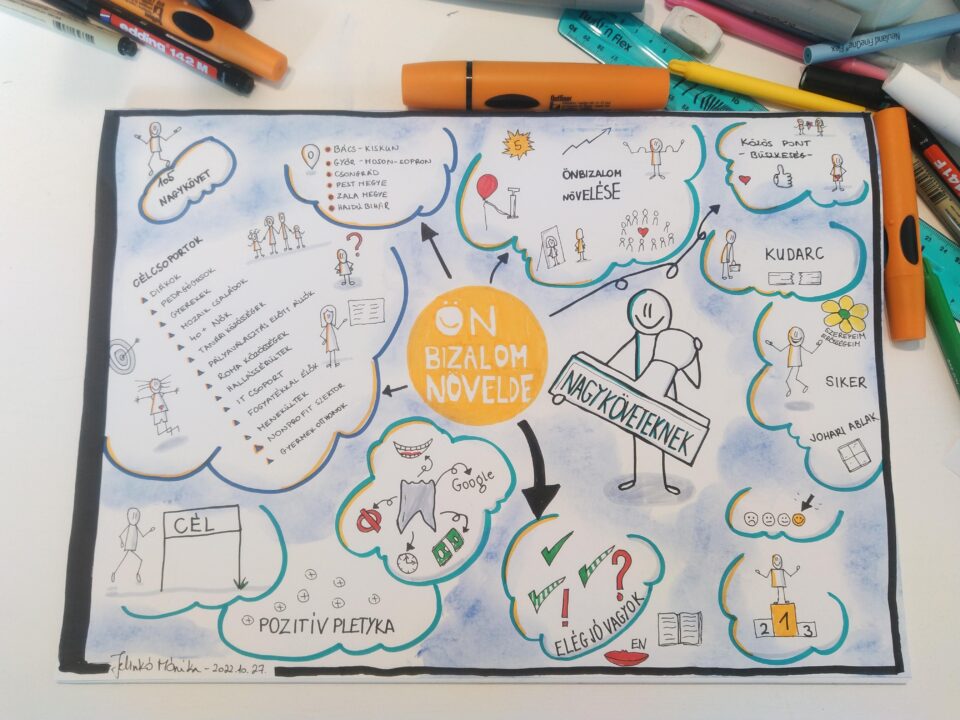 edding 142 M
Neuland FineOne Flex
105
NAGYKÖVET
BÁCS-KISKUN
GYŐR-MOSON-SOPRON
CSONGRÁD
PEST MEGYE
ZALA MEGYE
HAJDÚ BIHAR
5
ÖNBIZALOM
NÖVELÉSE
KÖZÖS PONT
- BÜSZKESÉG -
KUDARC
SIKER
JOHARI ABLAK
CÉLCSOPORTOK
DIÁKOK
PEDAGÓGUSOK
GYEREKEK
MOZAIK CSALÁDOK
40+ NŐK
TANÁRI KÖZÖSSÉGEK
PÁLYAVÁLASZTÁS ELŐTT ÁLLÓK
ROMA KÖZÖSSÉGEK
HALLÁSSÉRÜLTEK
IT CSOPORT
FOGYATÉKKAL ÉLŐK
MENEKÜLTEK
NONPROFIT SZEKTOR
GYERMEKOTTHONOK
?
ÖN
BIZALOM
NÖVELDE
NAGYKÖVETEKNEK
Google
CÉL
POZITÍV PLETYKA
! ?
ELÉGJÓ VAGYOK
EN
2 1 3
Jelinkó Mónika - 2022.10.27.